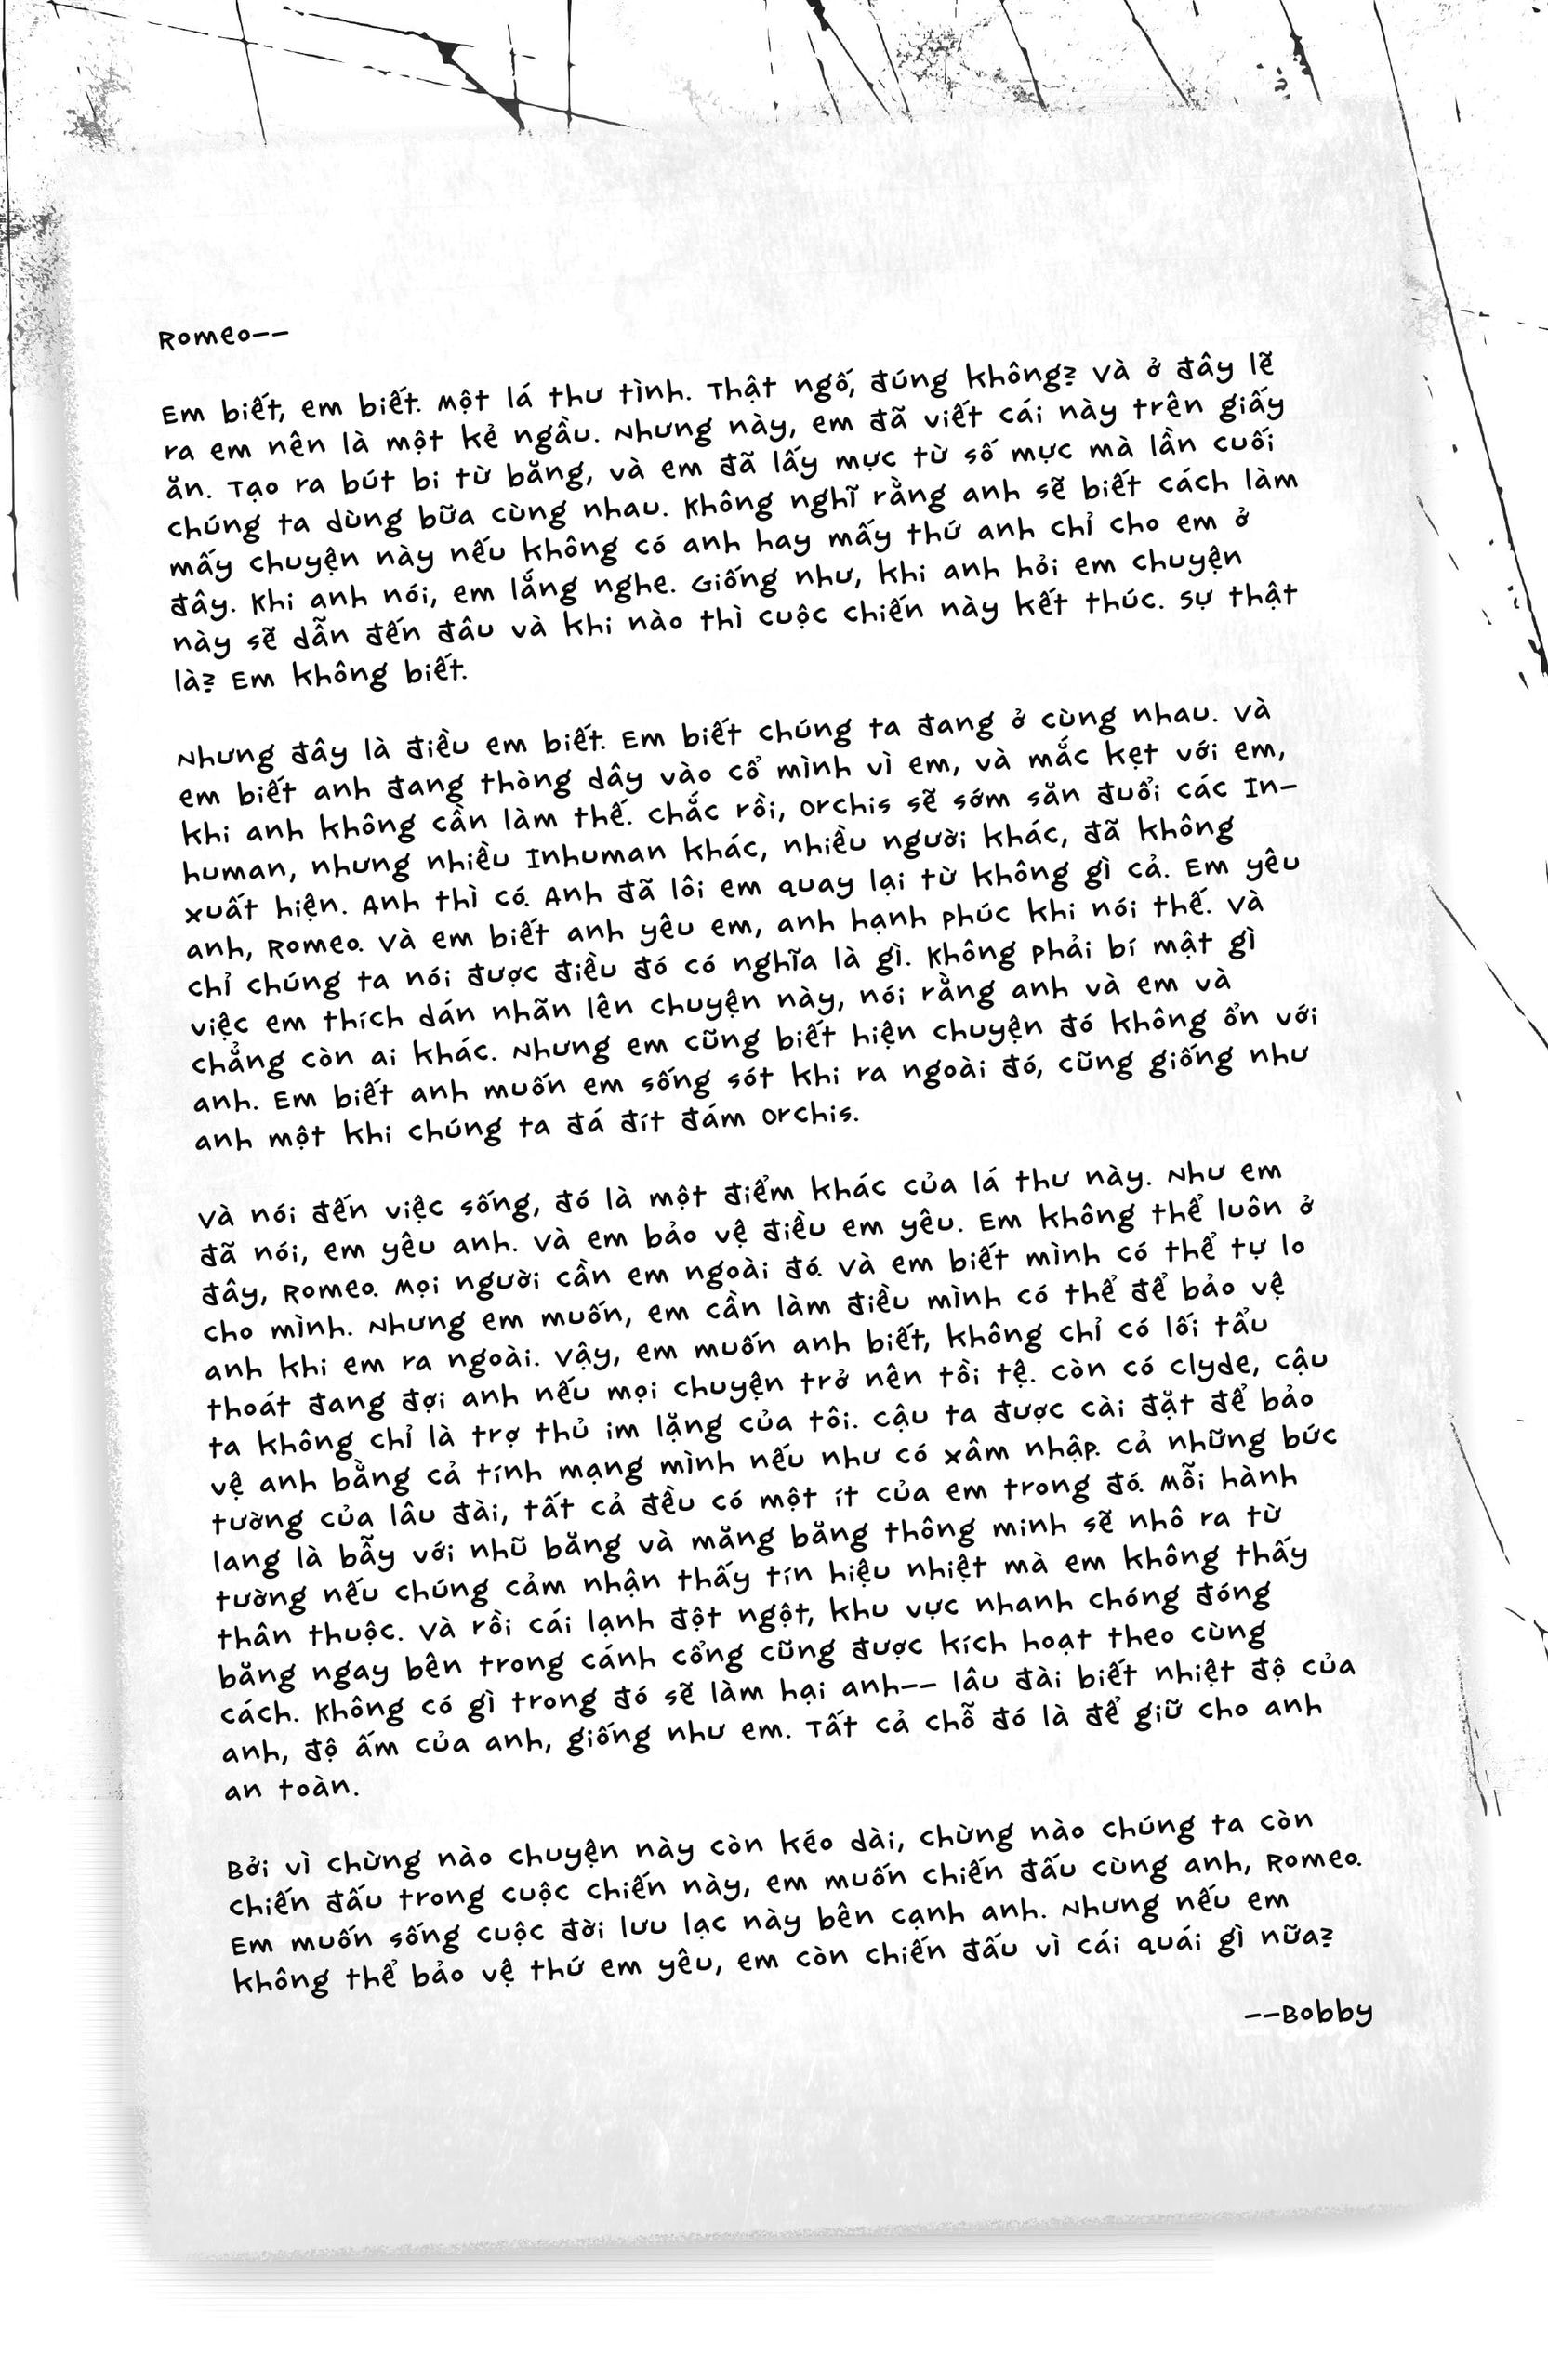 Romeo--
Em biết, em biết. Một lá thư tình. Thật ngố, đúng không? Và ở đây lẽ
ra em nên là một kẻ ngầu. Nhưng này, em đã viết cái này trên giấy
ăn. Tạo ra bút bi từ băng, và em đã lấy mực từ số mực mà lần cuối
chúng ta dùng bữa cùng nhau. Không nghĩ rằng anh sẽ biết cách làm
mấy chuyện này nếu không có anh hay mấy thứ anh chỉ cho em ở
đây. Khi anh nói, em lắng nghe. Giống như, khi anh hỏi em chuyện
này sẽ dẫn đến đâu và khi nào thì cuộc chiến này kết thúc. Sự thật
là? Em không biết.
Nhưng đây là điều em biết. Em biết chúng ta đang ở cùng nhau. Và
em biết anh đang thòng dây vào cổ mình vì em, và mắc kẹt với em,
khi anh không cần làm thế. Chắc rồi, Orchis sẽ sớm săn đuổi các In-
human, nhưng nhiều Inhuman khác, nhiều người khác, đã không
xuất hiện. Anh thì có. Anh đã lôi em quay lại từ không gì cả. Em yêu
anh, Romeo. Và em biết anh yêu em, anh hạnh phúc khi nói thế. Và
chỉ chúng ta nói được điều đó có nghĩa là gì. Không phải bí mật gì
việc em thích dán nhãn lên chuyện này, nói rằng anh và em và
chẳng còn ai khác. Nhưng em cũng biết hiện chuyện đó không ổn với
anh. Em biết anh muốn em sống sót khi ra ngoài đó, cũng giống như
anh một khi chúng ta đá đít đám Orchis.
Và nói đến việc sống, đó là một điểm khác của lá thư này. Như em
đã nói, em yêu anh. Và em bảo vệ điều em yêu. Em không thể luôn ở
đây, Romeo. Mọi người cần em ngoài đó. Và em biết mình có thể tự lo
cho mình. Nhưng em muốn, em cần làm điều mình có thể để bảo vệ
anh khi em ra ngoài. Vậy, em muốn anh biết, không chỉ có lối tẩu
thoát đang đợi anh nếu mọi chuyện trở nên tồi tệ. Còn có Clyde, cậu
ta không chỉ là trợ thủ im lặng của tôi. Cậu ta được cài đặt để bảo
vệ anh bằng cả tính mạng mình nếu như có xâm nhập. Cả những bức
tường của lâu đài, tất cả đều có một ít của em trong đó. Mỗi hành
lang là bẫy với nhũ băng và măng băng thông minh sẽ nhô ra từ
tường nếu chúng cảm nhận thấy tín hiệu nhiệt mà em không thấy
thân thuộc. Và rồi cái lạnh đột ngột, khu vực nhanh chóng đóng
băng ngay bên trong cánh cổng cũng được kích hoạt theo cùng
cách. Không có gì trong đó sẽ làm hại anh-- lâu đài biết nhiệt độ của
anh, độ ấm của anh, giống như em. Tất cả chỗ đó là để giữ cho anh
an toàn.
Bởi vì chừng nào chuyện này còn kéo dài, chừng nào chúng ta còn
chiến đấu trong cuộc chiến này, em muốn chiến đấu cùng anh, Romeo.
Em muốn sống cuộc đời lưu lạc này bên cạnh anh. Nhưng nếu em
không thể bảo vệ thứ em yêu, em còn chiến đấu vì cái quái gì nữa?
--Bobby